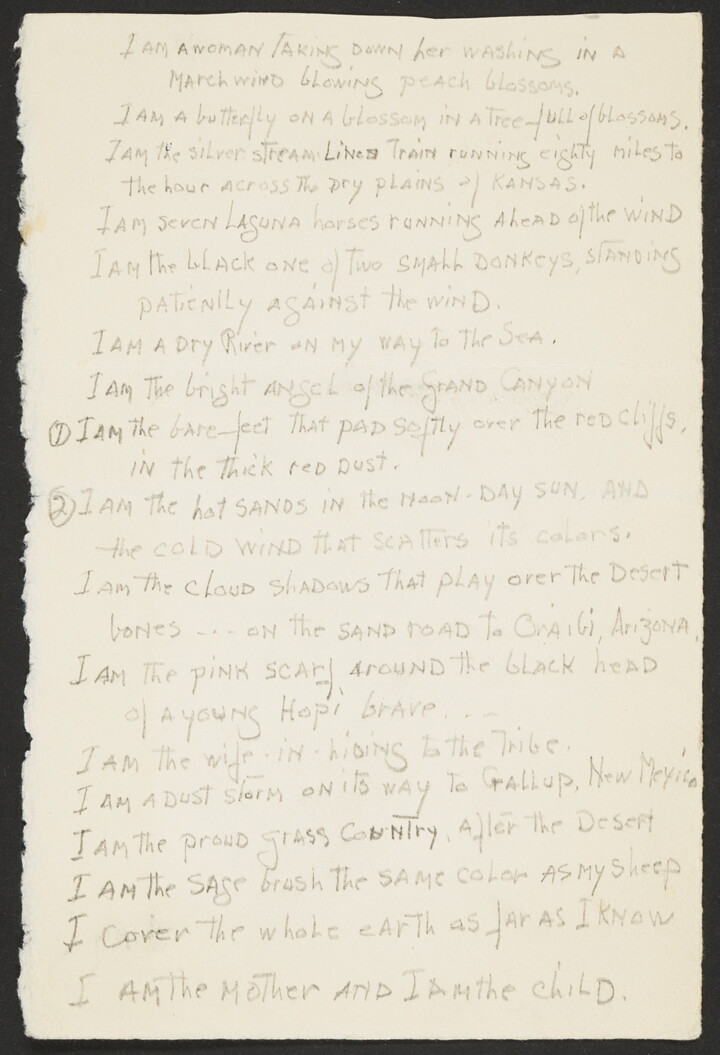 I AM A WOMAN TAKING DOWN her WASHING IN A
MARCH WIND blowing peach blossoms.
I AM A butterfly ON A blossom IN A Tree-full of blossoms.
I AM the silver stream-Lined Train running eighty miles to
the hour across the Dry plains of KANSAS.
I AM seven LAGUNA horses running Ahead of the WIND
I AM the bLACK one of Two SMALL DONKeys, STANDING
patiently against the WIND.
I AM A Dry River ON MY way To The Sea.
I AM The bright angel of the GRAND CANYON
① I AM the bare-feet That PAD softly over The red cliffs,
in the thick red DUST.
② I AM the hot SANDS in the NOON-DAY SUN, AND
the COLD WIND that scatters its colors.
I AM the cLOUD SHADOWS That PLAY over The Desert
bones --- ON the SAND ROAD To Oraibi, Arizona,
I AM The pink scarf around the bLACK head
of a young Hopi brave...-
I AM the wife-in-hiding to the Tribe.
I AM A DUST storm on its way to Gallup, New Mexico
I AM the proud grass Country, After the Desert
I AM the SAGE brush the SAME color AS MY sheep
I cover the whole earth as far as I KNOW
I AM the Mother AND I AM the chiLD.